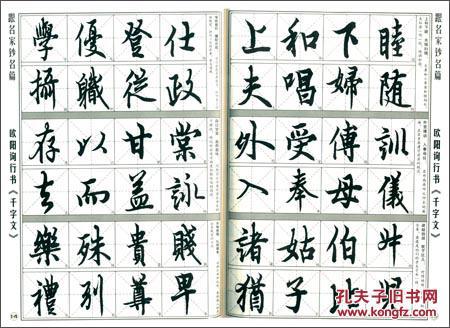 跟名家钞名篇
欧阳询行书《千字文》
學優登仕
攝職從政
存以甘棠
去而益詠
樂殊貴賤
禮别尊卑
14
上和下睦
夫唱婦随
外受傅訓
入奉母儀
諸姑伯叔
猶子比兒
跟名家钞名篇
欧阳询行书《千字文》
孔夫子旧书网
www.kongfz.com